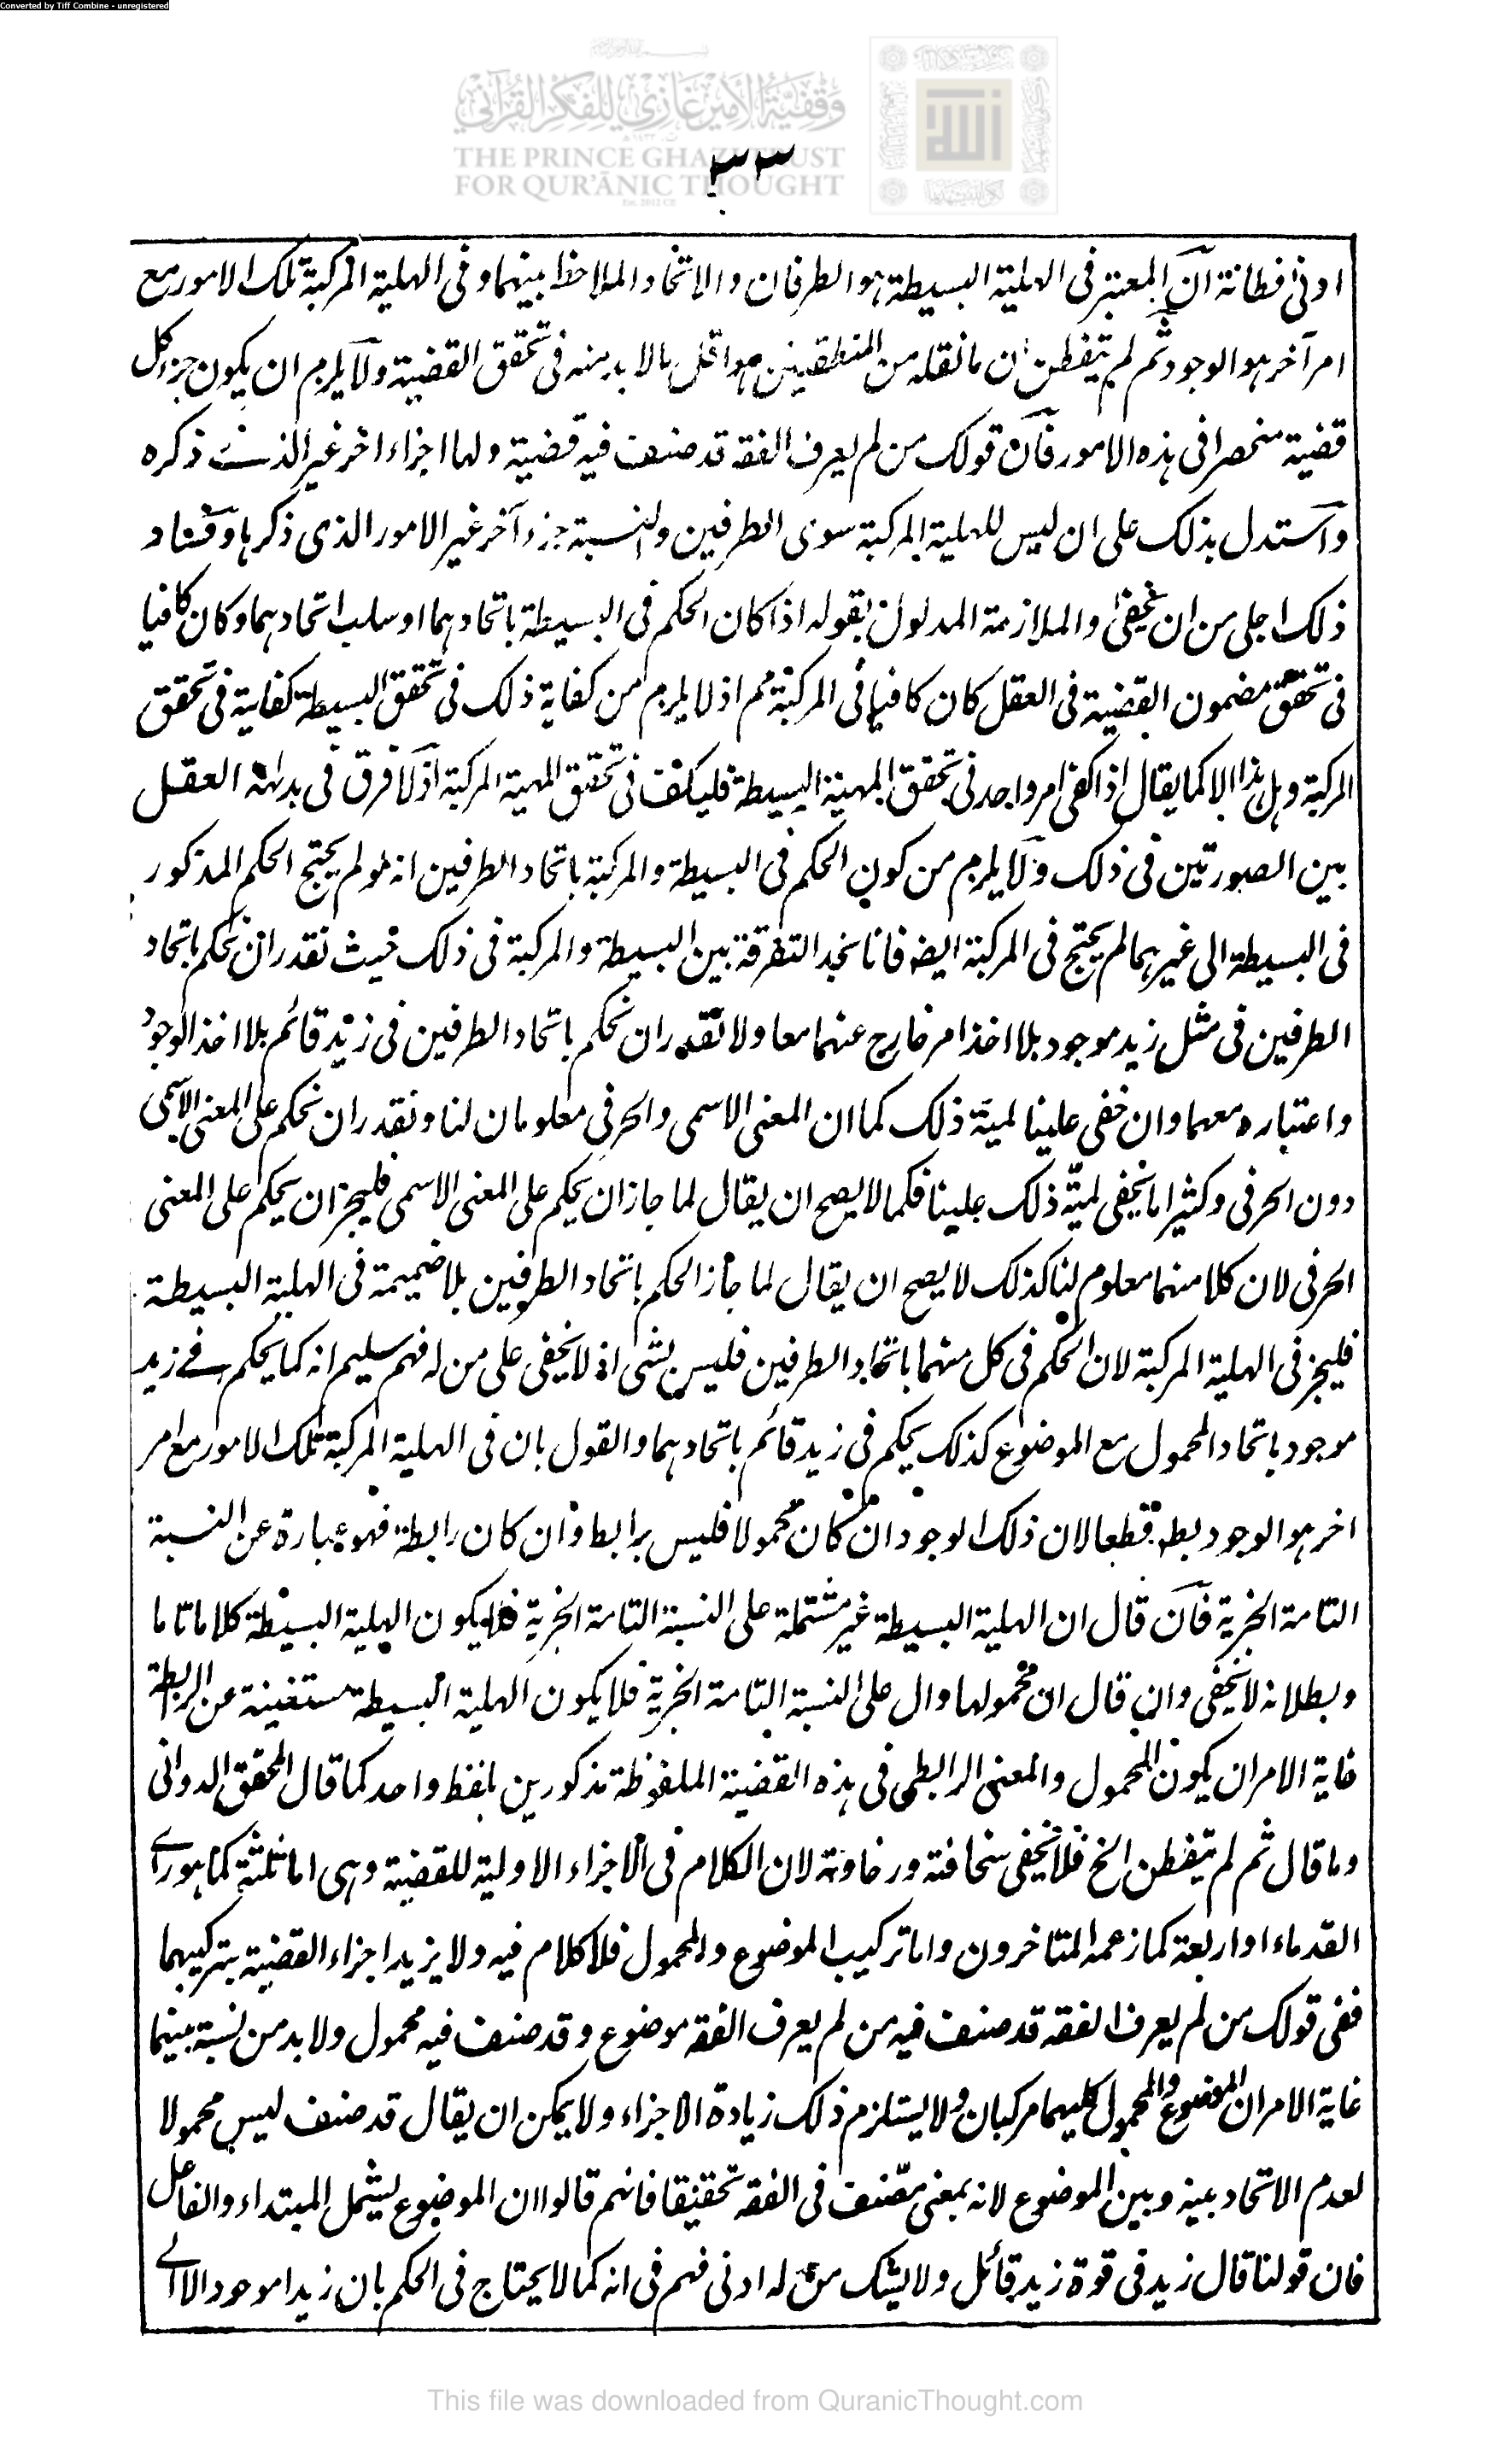 Converted by Tiff Combine - unregistered
وقفية الأمير غازي للفكر القرآني
THE PRINCE GHAZI TRUST
FOR QUR'ĀNIC THOUGHT
٣٣
ادنى فطانة ان المعتبر فى الهلية البسيطة هو الطرفان والاتحاد الملاحظ بينهما وفى الهلية المركبة تلك الامور مع
امر آخر هو الوجود ثم لم يتفطن ان ما نقله من المنطقيين هو اقل ما لا بد منه فى تحقق القضية ولا يلزم ان يكون جزء كل
قضية منحصرا فى هذه الامور فان قولك من لم يعرف الفقه قد صنف فيه قضية ولها اجزاء اخر غير الذى ذكره
واستدل بذلك على ان ليس للهلية المركبة سوى الطرفين والنسبة جزء آخر غير الامور الذى ذكرها وفساد
ذلك اجلى من ان يخفى والملازمة المدلول بقوله اذا كان الحكم فى البسيطة باتحادهما او سلب اتحادهما وكان كافيا
فى تحقق مضمون القضية فى العقل كان كافيا فى المركبة مم اذ لا يلزم من كفاية ذلك فى تحقق البسيطة كفايته فى تحقق
المركبة وهل هذا الا كما يقال اذا كفى امر واحد فى تحقق المهية البسيطة فليكف فى تحقق المهية المركبة اذ لا فرق فى بداهة العقل
بين الصورتين فى ذلك ولا يلزم من كون الحكم فى البسيطة والمركبة باتحاد الطرفين انه لو لم يحتج الحكم المذكور
فى البسيطة الى غيرهما لم يحتج فى المركبة ايضا فانا نجد التفرقة بين البسيطة والمركبة فى ذلك حيث نقدر ان نحكم باتحاد
الطرفين فى مثل زيد موجود بلا اخذ امر خارج عنهما معا ولا نقدر ان نحكم باتحاد الطرفين فى زيد قائم بلا اخذ الوجود
واعتباره معهما وان خفى علينا لمية ذلك كما ان المعنى الاسمى والحرفى معلومان لنا ونقدر ان نحكم على المعنى الاسمى
دون الحرفى وكثيرا ما يخفى لمية ذلك علينا فكما لا يصح ان يقال لما جاز ان يحكم على المعنى الاسمى فليجز ان يحكم على المعنى
الحرفى لان كلا منهما معلوم لنا كذلك لا يصح ان يقال لما جاز الحكم باتحاد الطرفين بلا ضميمة فى الهلية البسيطة
فليجز فى الهلية المركبة لان الحكم فى كل منهما باتحاد الطرفين فليس بشى اذ لا يخفى على من له فهم سليم انه كما يحكم فى زيد
موجود باتحاد المحمول مع الموضوع كذلك يحكم فى زيد قائم باتحادهما والقول بان فى الهلية المركبة تلك الامور مع امر
اخر هو الوجود بط قطعا لان ذلك الوجود ان كان محمولا فليس برابط وان كان رابطة فهو عبارة عن النسبة
التامة الخبرية فان قال ان الهلية البسيطة غير مشتملة على النسبة التامة الخبرية فلا يكون الهلية البسيطة كلاما تاما
وبطلانه لا يخفى وان قال ان محمولها دال على النسبة التامة الخبرية فلا يكون الهلية البسيطة مستغنية عن الرابطة
غاية الامر ان يكون المحمول والمعنى الرابطى فى هذه القضية الملفوظة مذكورين بلفظ واحد كما قال المحقق الدوانى
وما قال ثم لم يتفطن الخ فلا يخفى سخافته ورخاوته لان الكلام فى الاجزاء الاولية للقضية وهى اما ثلثة كما هو راى
القدماء او اربعة كما زعمه المتاخرون واما تركيب الموضوع والمحمول فلا كلام فيه ولا يزيد اجزاء القضية بتركيبهما
ففى قولك من لم يعرف الفقه قد صنف فيه من لم يعرف الفقه موضوع وقد صنف فيه محمول ولا بد من نسبة بينهما
غاية الامر ان الموضوع والمحمول كليهما مركبان ولا يستلزم ذلك زيادة الاجزاء ولا يمكن ان يقال قد صنف ليس محمولا
لعدم الاتحاد بينه وبين الموضوع لانه بمعنى مصنف فى الفقه تحقيقا فانهم قالوا ان الموضوع يشمل المبتداء والفاعل
فان قولنا قال زيد فى قوة زيد قائل ولا يشك من له ادنى فهم فى انه كما لا يحتاج فى الحكم بان زيدا موجود الا الى
This file was downloaded from QuranicThought.com